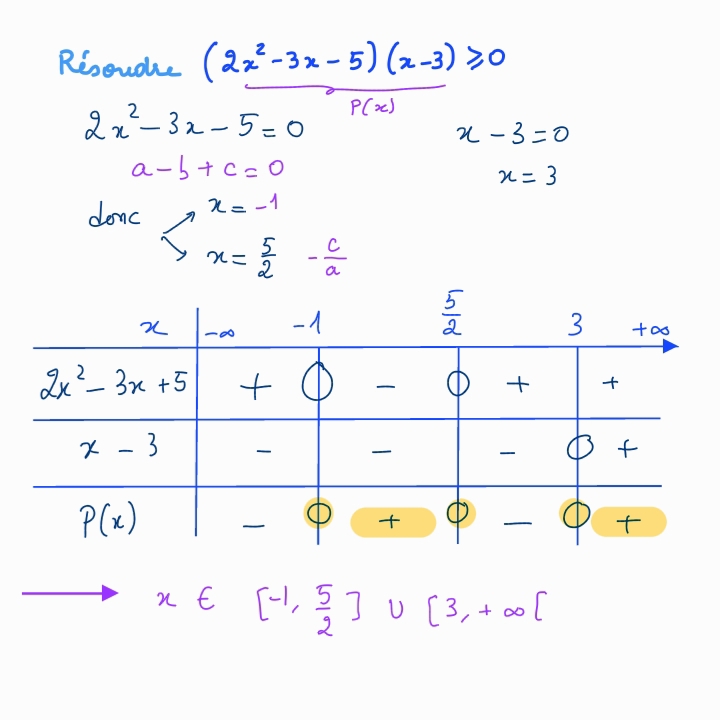 Résoudre (2x²-3x-5)(x-3)⩾0
P(x)
2x²-3x-5=0
x-3=0
a-b+c=0
x=3
donc
x=-1
x=5/2 -c/a
x -∞ -1 5/2 3 +∞
2x²-3x+5 + 0 - 0 + +
x-3 - - - 0 +
P(x) - 0 + 0 - 0 +
x ∈ [-1, 5/2] ∪ [3, +∞[